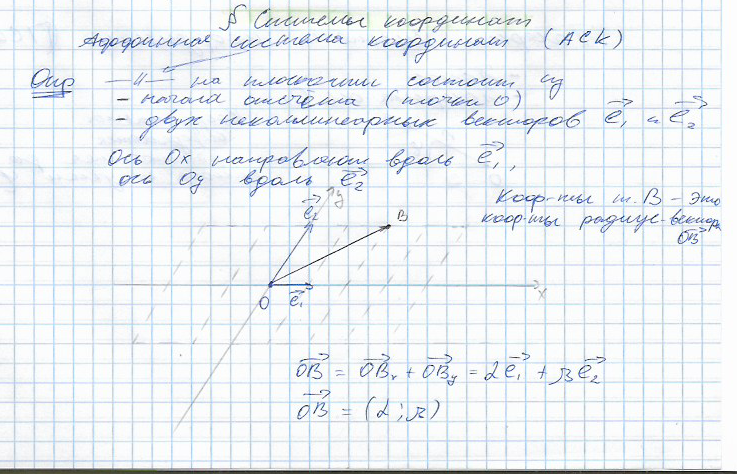 § Системы координат
Аффинная система координат (АСК)
Опр —"— на плоскости состоит из
- начала отсчёта (точки О)
- двух неколлинеарных векторов e₁ и e₂
Ось Ох направляют вдоль e₁,
ось Оу вдоль e₂
Коор-ты т. В - это
коор-ты радиус-вектора
OB
e₂ y
B
O e₁ x
OB = OBₓ + OBᵧ = αe₁ + βe₂
OB = (α; β)